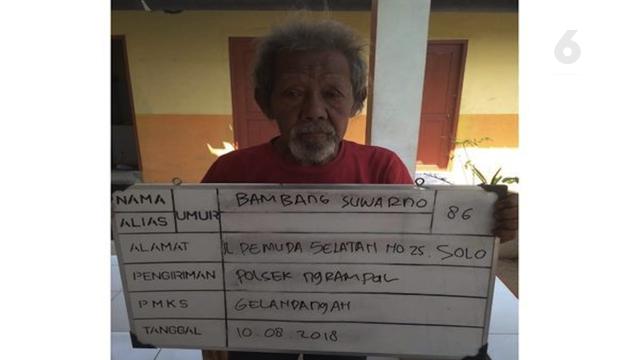 6
NAMA BAMBANG SUWARNO
ALIAS UMUR 86
ALAMAT JL PEMUDA SELATAN NO 25. SOLO
PENGIRIMAN POLSEK NGRAMPAL
PMKS GELANDANGAN
TANGGAL 10.08.2018